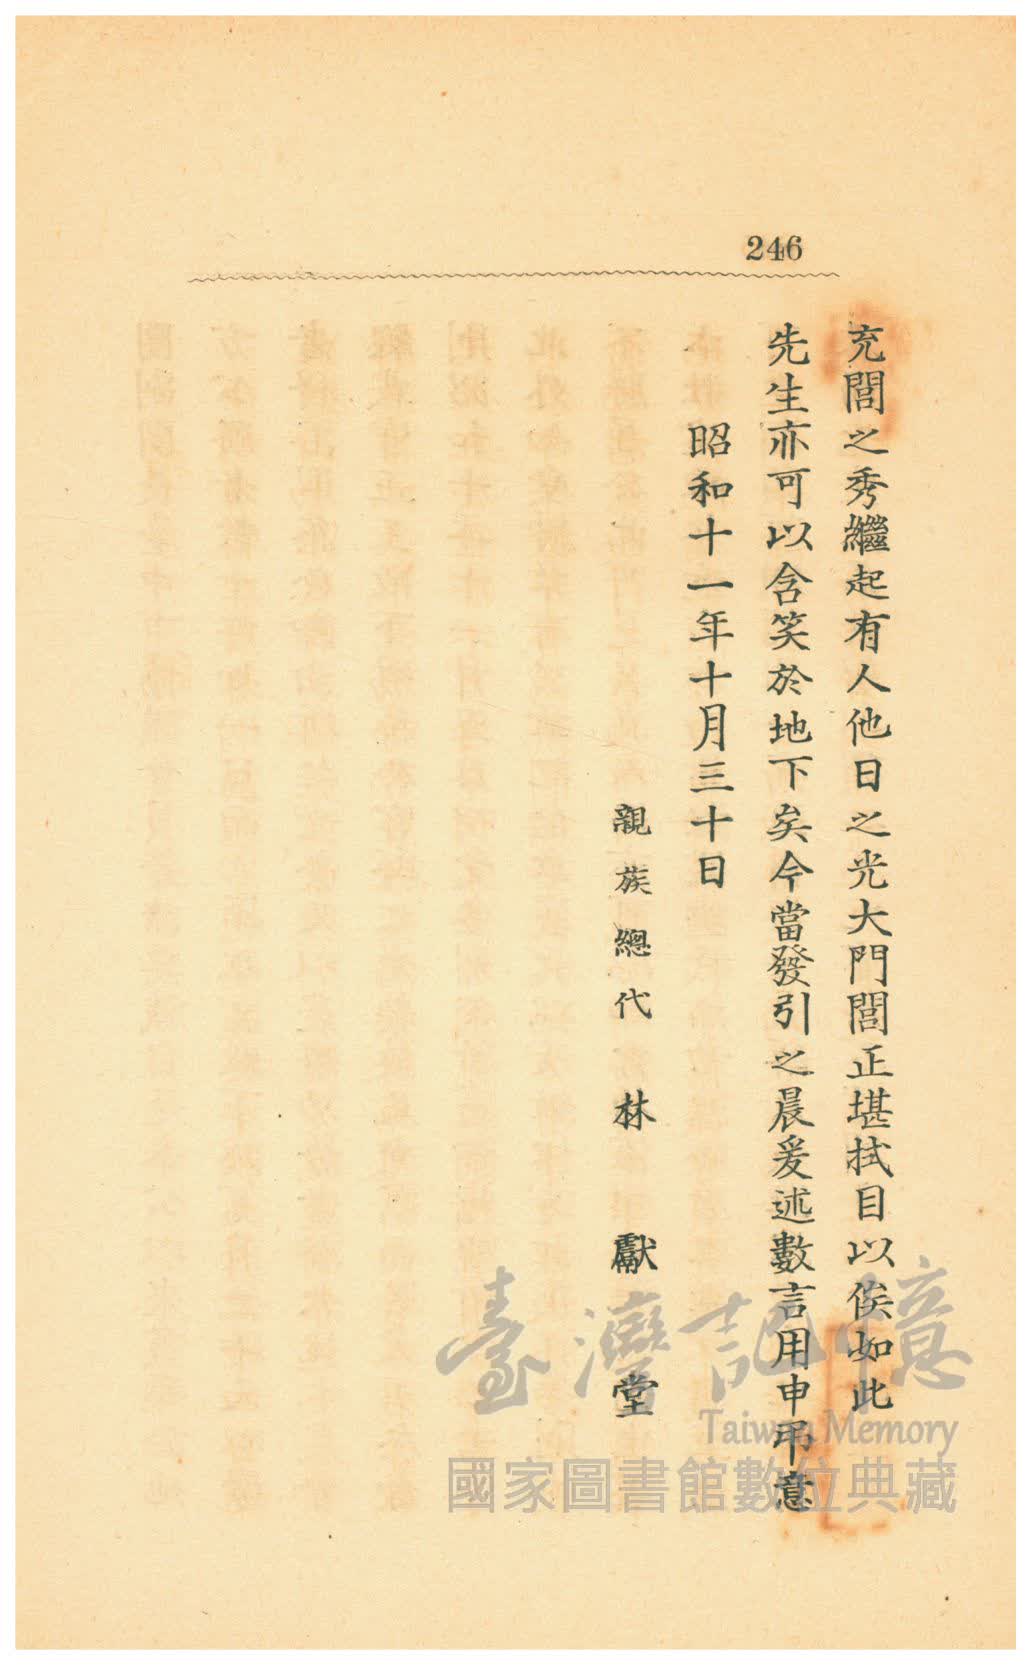 246
充閭之秀繼起有人他日之光大門閭正堪拭目以俟如此
先生亦可以含笑於地下矣今當發引之晨爰述數言用申弔意
昭和十一年十月三十日
親族總代 林獻堂
臺灣記憶
Taiwan Memory
國家圖書館數位典藏